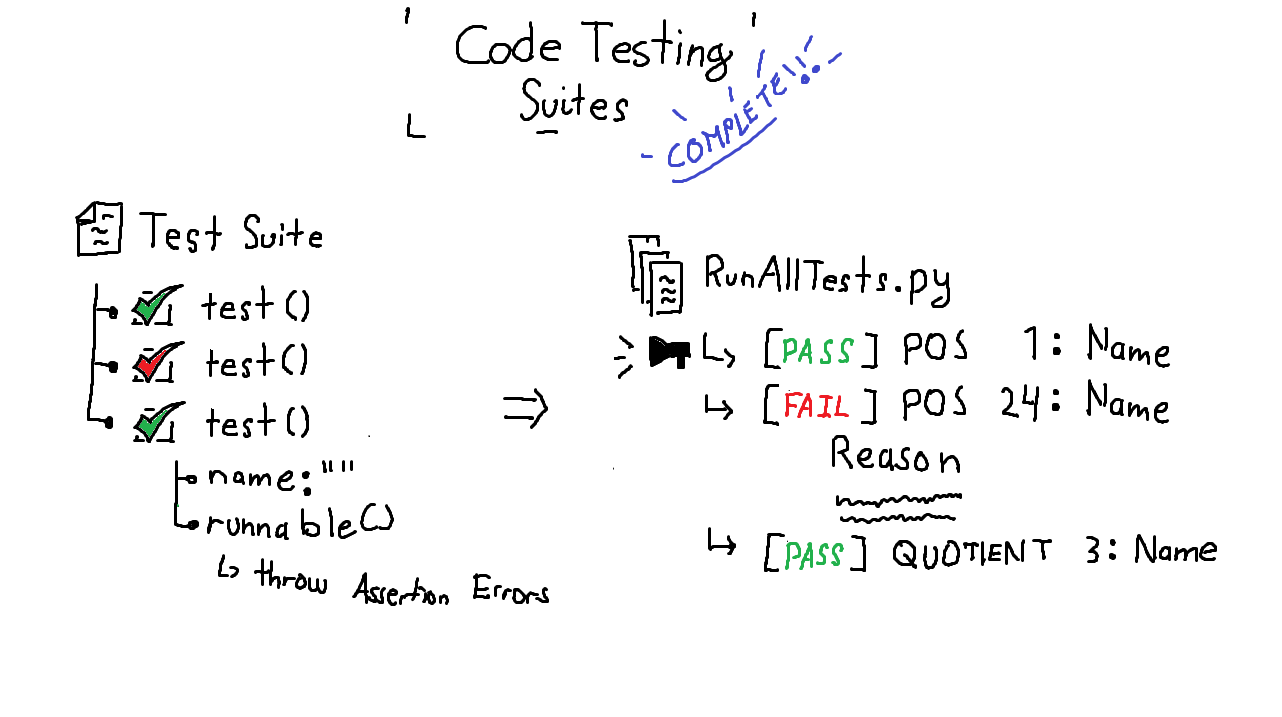 Code Testing
Suites
COMPLETE!!
Test Suite
test()
test()
test()
name: ""
runnable()
throw Assertion Errors
RunAllTests.py
[PASS] POS 1: Name
[FAIL] POS 24: Name
Reason
[PASS] QUOTIENT 3: Name